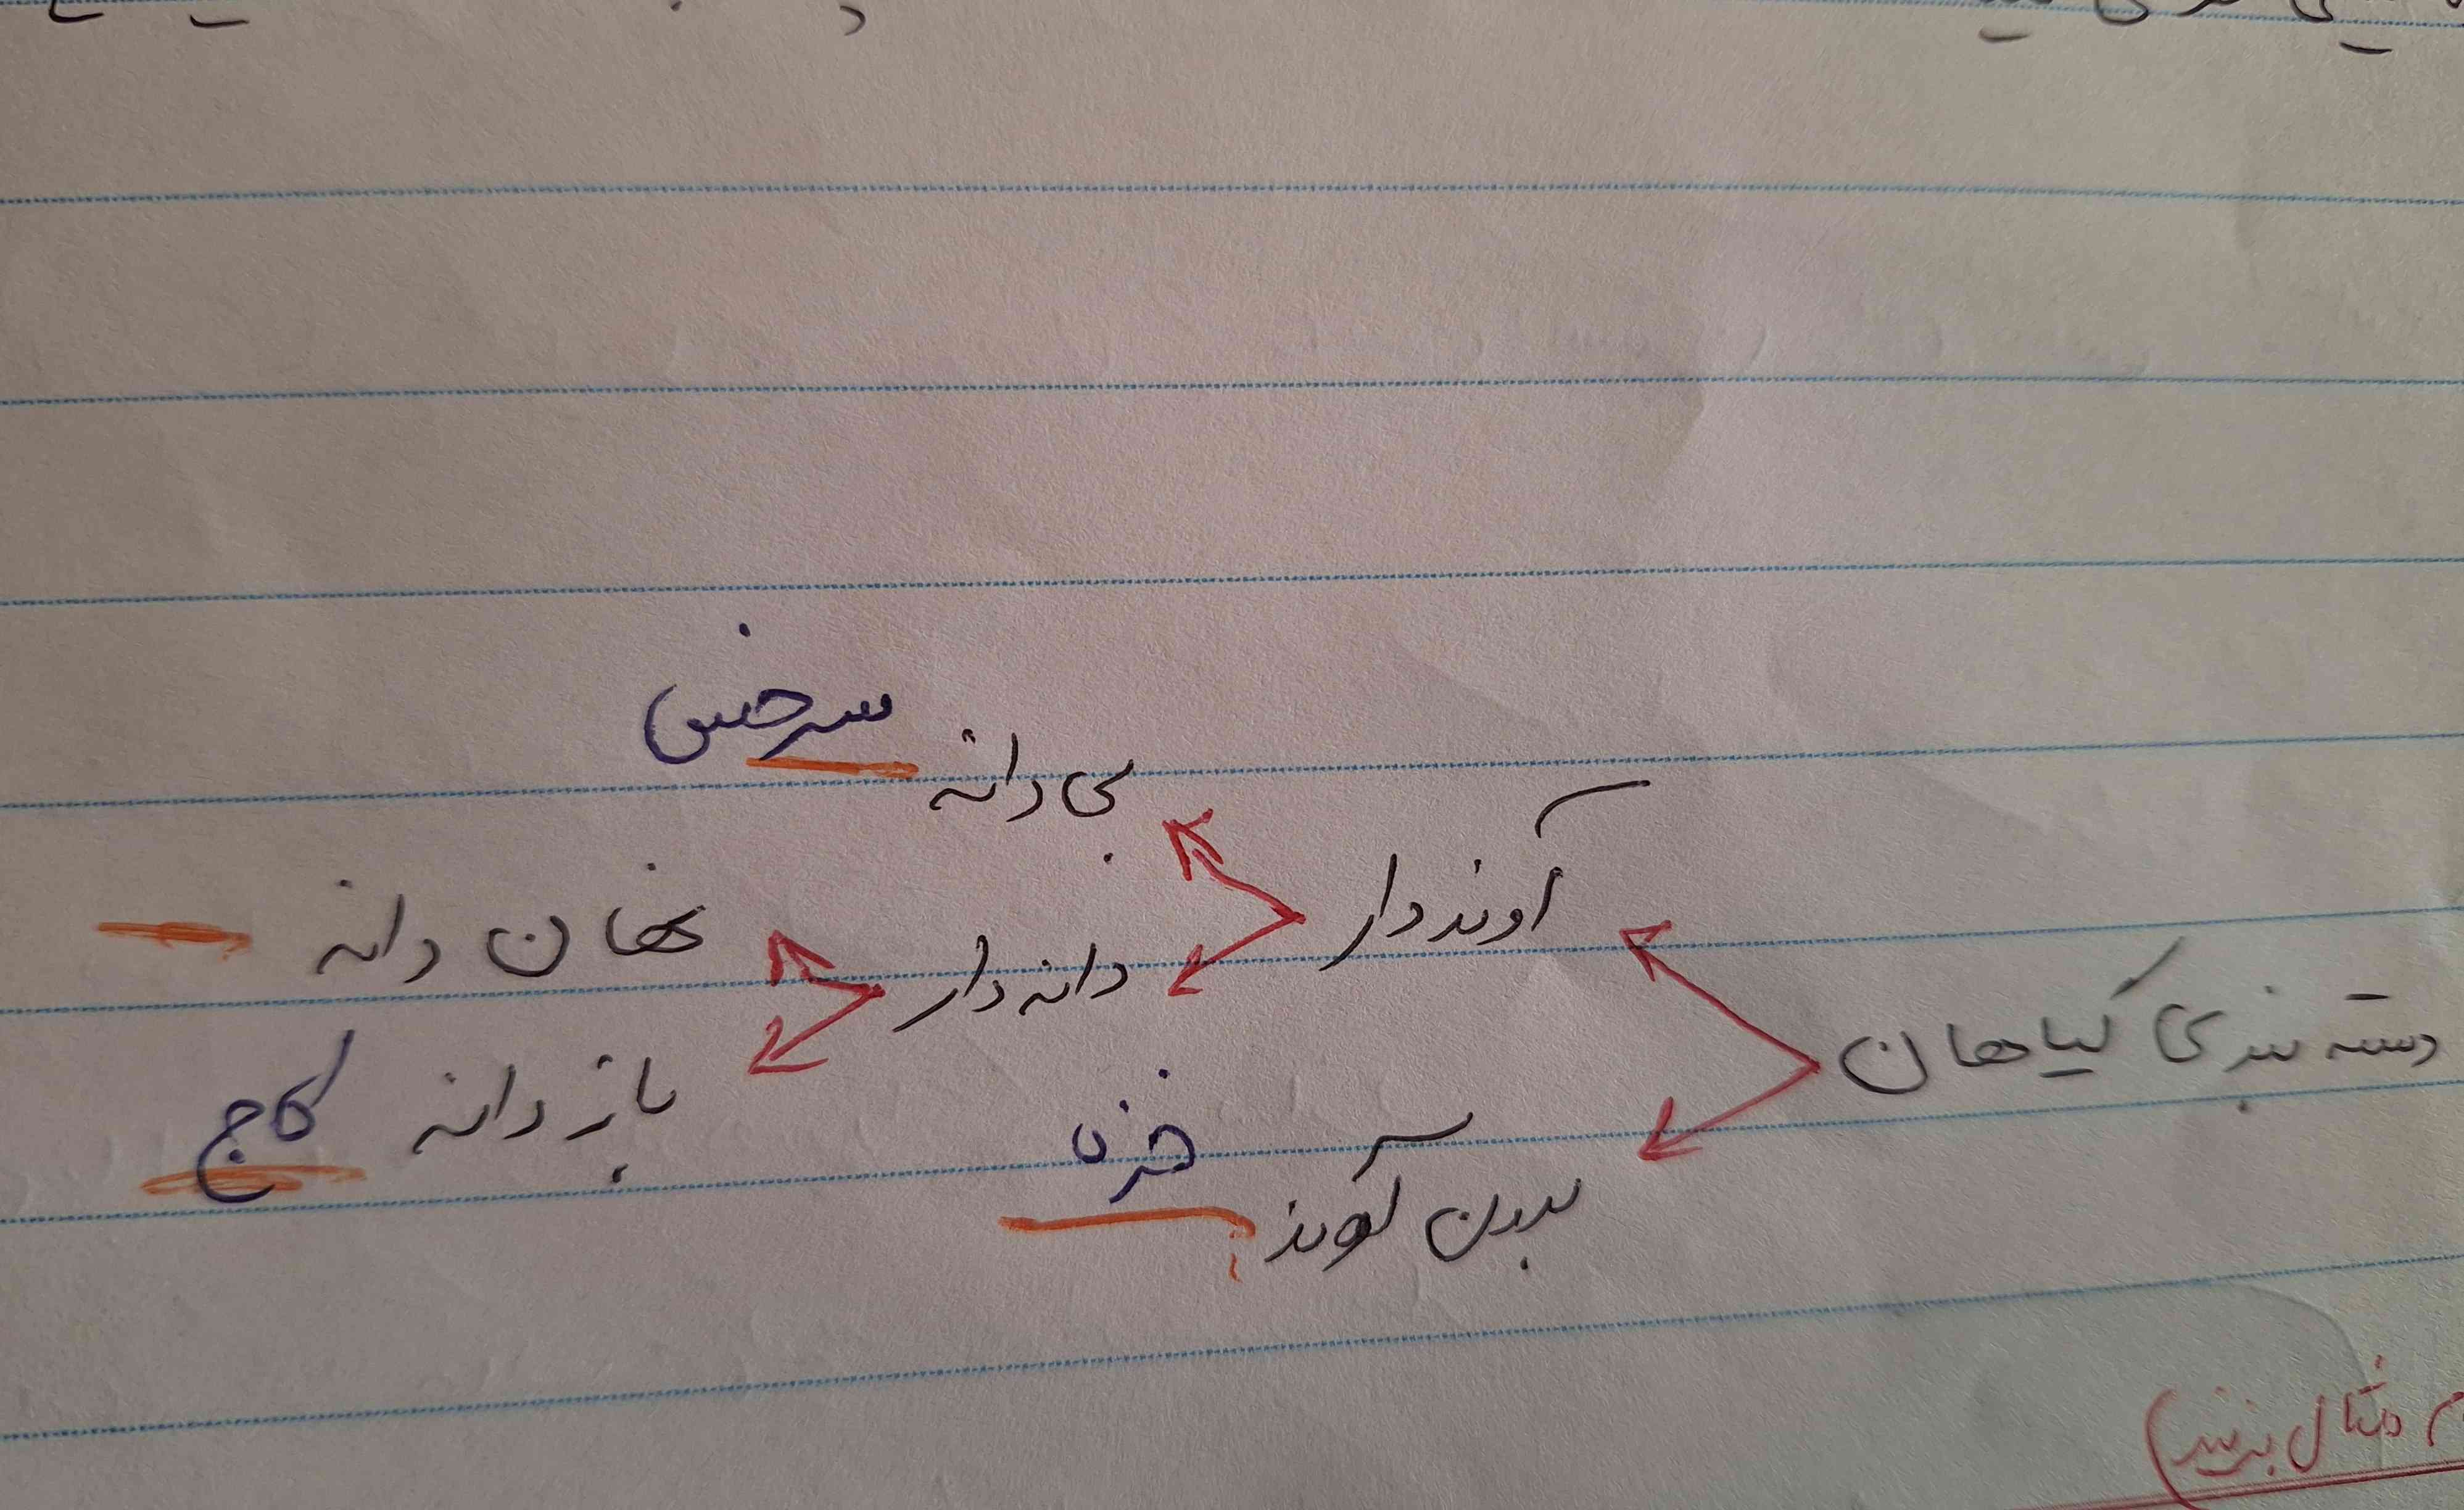 بی دانه سرخس
آونددار
دانه دار
نهان دانه
باز دانه کاج
دسته بندی گیاهان
بدون آوند خزه
مثال بزنید)